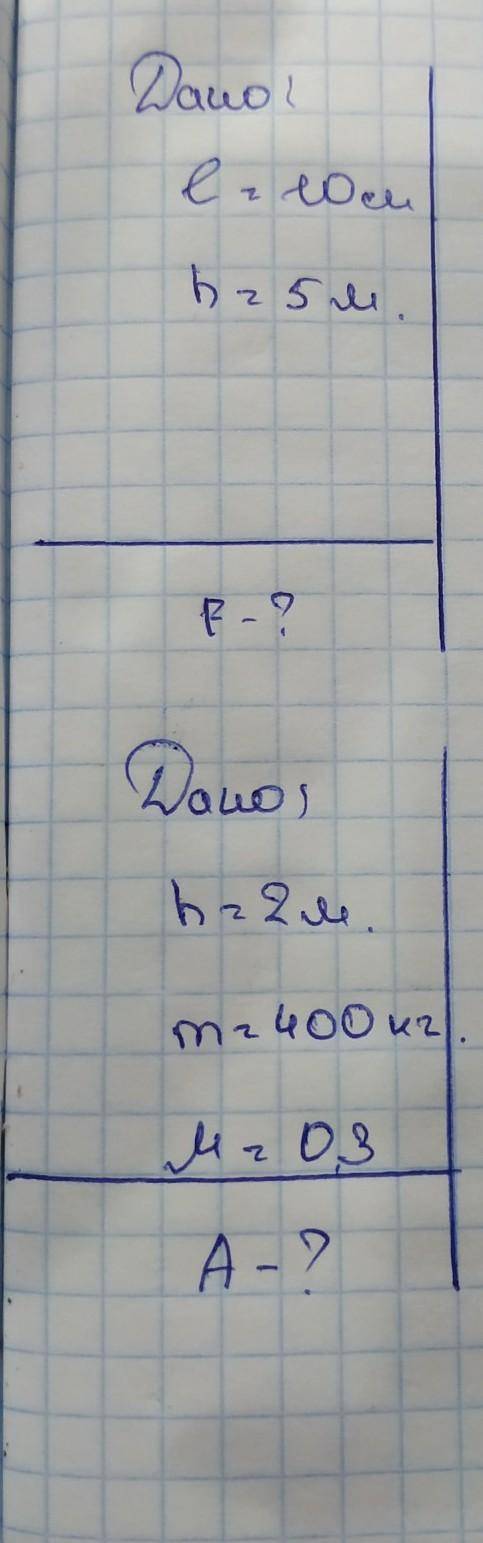 Дано:
l = 10 см
h = 5 м.
F - ?
Дано:
h = 2 м.
m = 400 кг.
μ = 0,3
A - ?